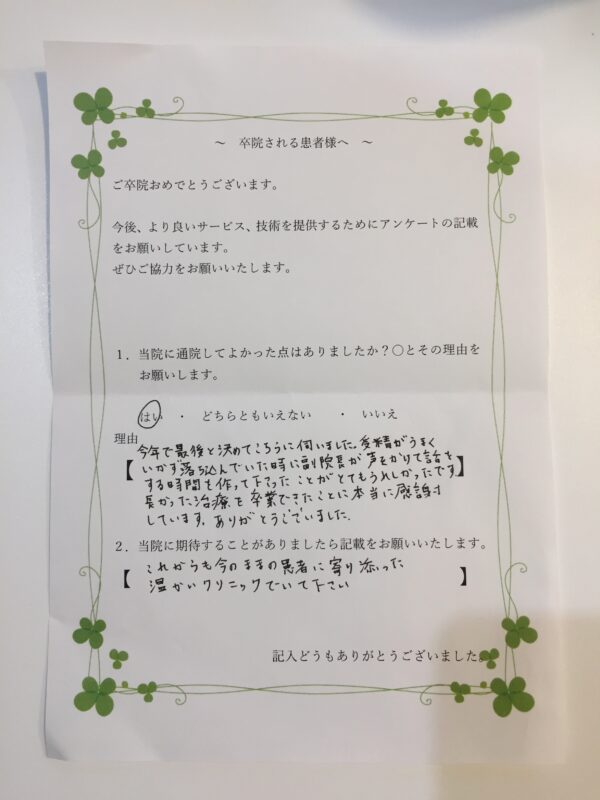 ～　卒院される患者様へ　～
ご卒院おめでとうございます。
今後、より良いサービス、技術を提供するためにアンケートの記載
をお願いしています。
ぜひご協力をお願いいたします。
１．当院に通院してよかった点はありましたか？〇とその理由を
お願いします。
はい　・　どちらともいえない　・　いいえ
理由
今年で最後と決めてこちらに伺いました。受精がうまく
【いかず落ち込んでいた時に副院長が声をかけて話を】
する時間を作って下さったことがとてもうれしかったです
長かった治療を卒業できたことに本当に感謝
しています。ありがとうございました。
２．当院に期待することがありましたら記載をお願いいたします。
【これからも今のままの患者に寄り添った】
温かいクリニックでいて下さい
記入どうもありがとうございました。